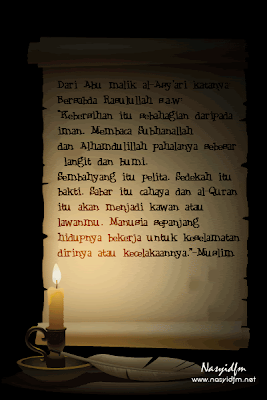 Dari Abu malik al-Asy'ari katanya
Bersabda Rasulullah s.a.w:
"Kebersihan itu sebahagian daripada
iman. Membaca Subhanallah
dan Alhamdulillah pahalanya sebesar
langit dan bumi.
Sembahyang itu pelita. Sedekah itu
bakti. Sabar itu cahaya dan al-Quran
itu akan menjadi kawan atau
lawanmu. Manusia sepanjang
hidupnya bekerja untuk keselamatan
dirinya atau kecelakaannya."-Muslim
Nasyidfm
www.nasyidfm.net